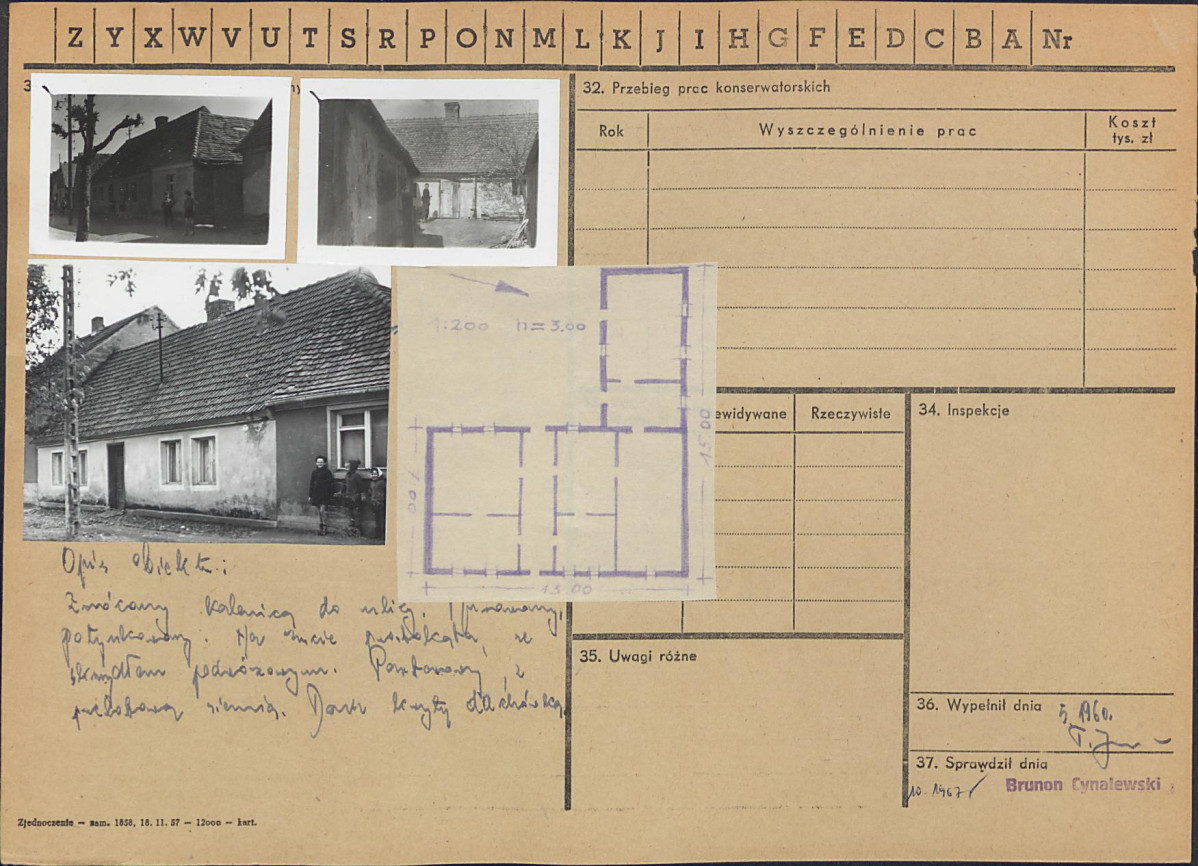 Z Y X W V U T S R P O N M L K J I H G F E D C B A Nr
32. Przebieg prac konserwatorskich
Rok
Wyszczególnienie prac
Koszt
tys. zł
1:200 h=3,00
15.00
15.00
ewidywane
Rzeczywiste
34. Inspekcje
Opis obiektu:
Zwrócony kalenicą do ulicy. murowany,
potynkowany. Na rzucie prostokąta, ze
skrzydłem podwórzowym. Parterowy, z
przelotową sienią. Dach kryty dachówką.
35. Uwagi różne
36. Wypełnił dnia
5.1960.
37. Sprawdził dnia
10.1967
Brunon Cynalewski
Zjednoczenie — zam. 1858, 16. 11. 57 — 12000 — kart.